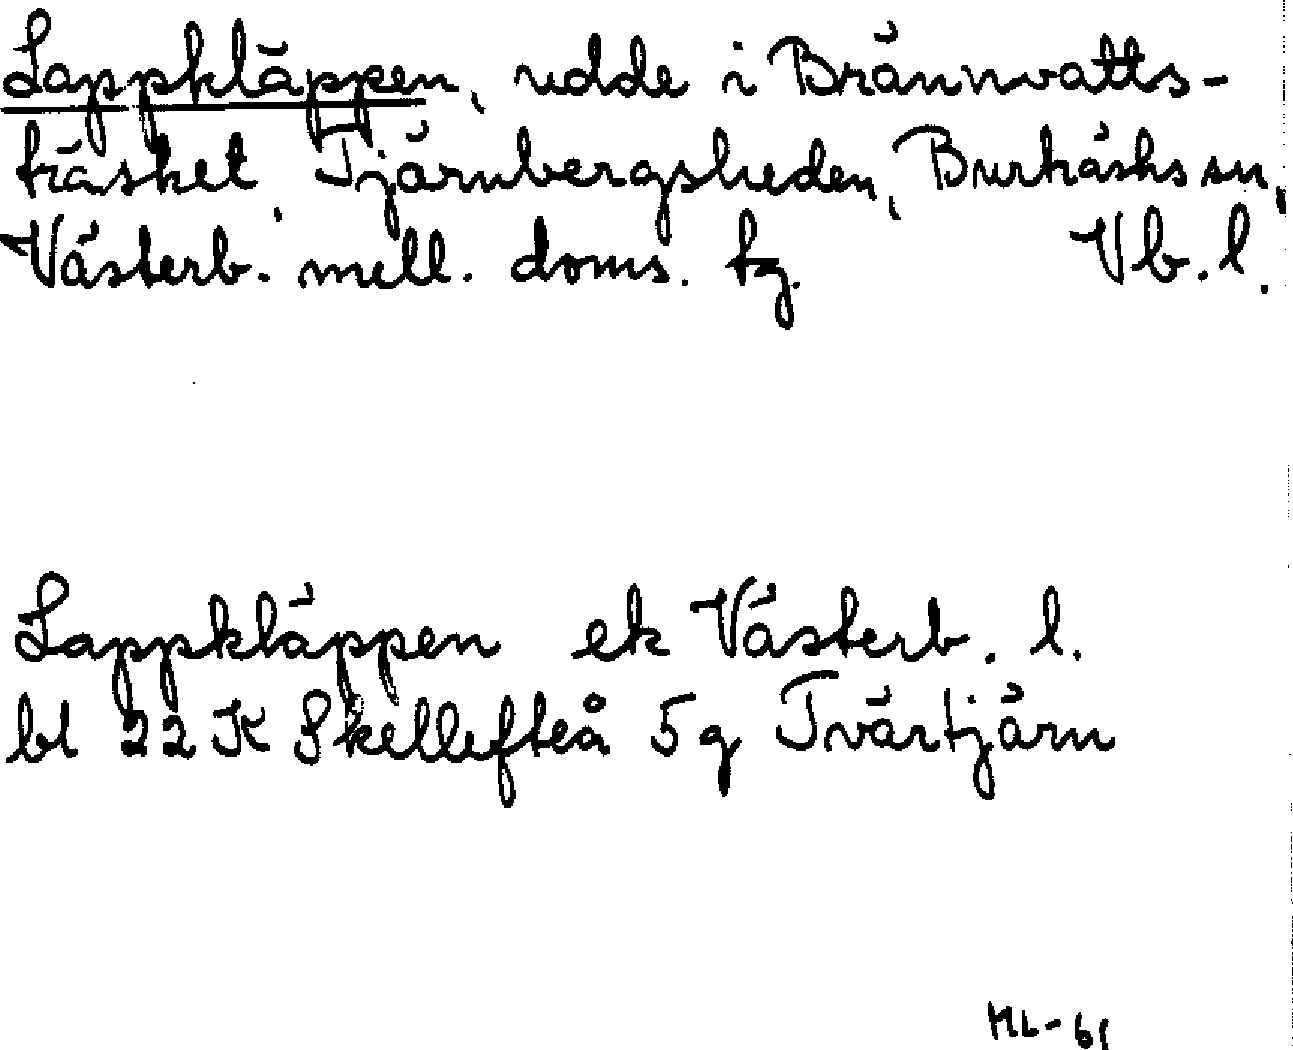 Lappkläppen, udde i Brännvatts-
träsket, Tjärnbergsheden, Burträsks sn,
Västerb. mell. doms. tg. Vb. l.
Lappkläppen ek Västerb. l.
bl 22 K Skellefteå 5 g Tvärtjärn
ML-61